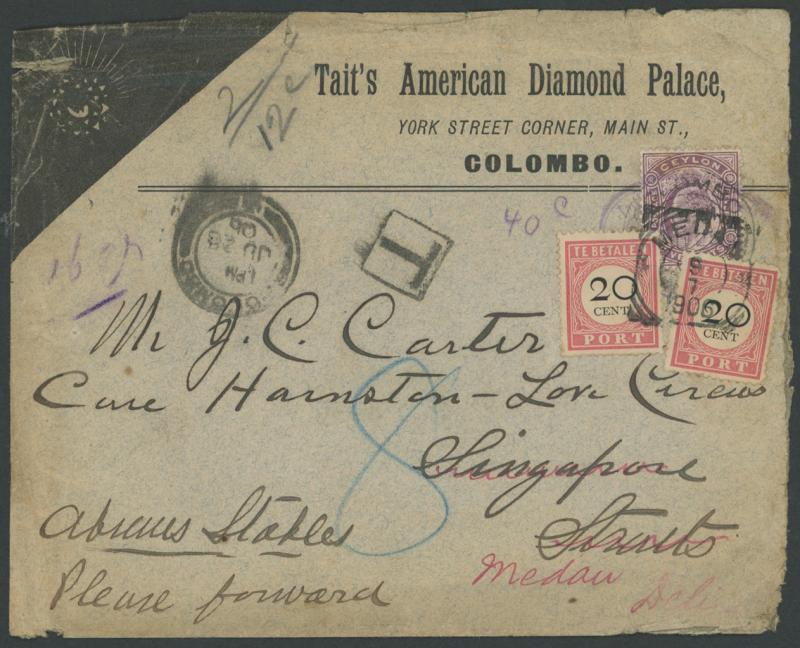 Tait's American Diamond Palace,
YORK STREET CORNER, MAIN ST.,
COLOMBO.
2/
12 c
40 c
CEYLON
T
1 PM
JU 28
06
MEDAN
9
7
1906
TE BETALEN
20
CENT
PORT
TE BETALEN
20
CENT
PORT
8
Mr J. C. Carter
Care Harmston-Love Circus
Singapore
Straits
Abrams Stables
Please forward
Medan
Deli